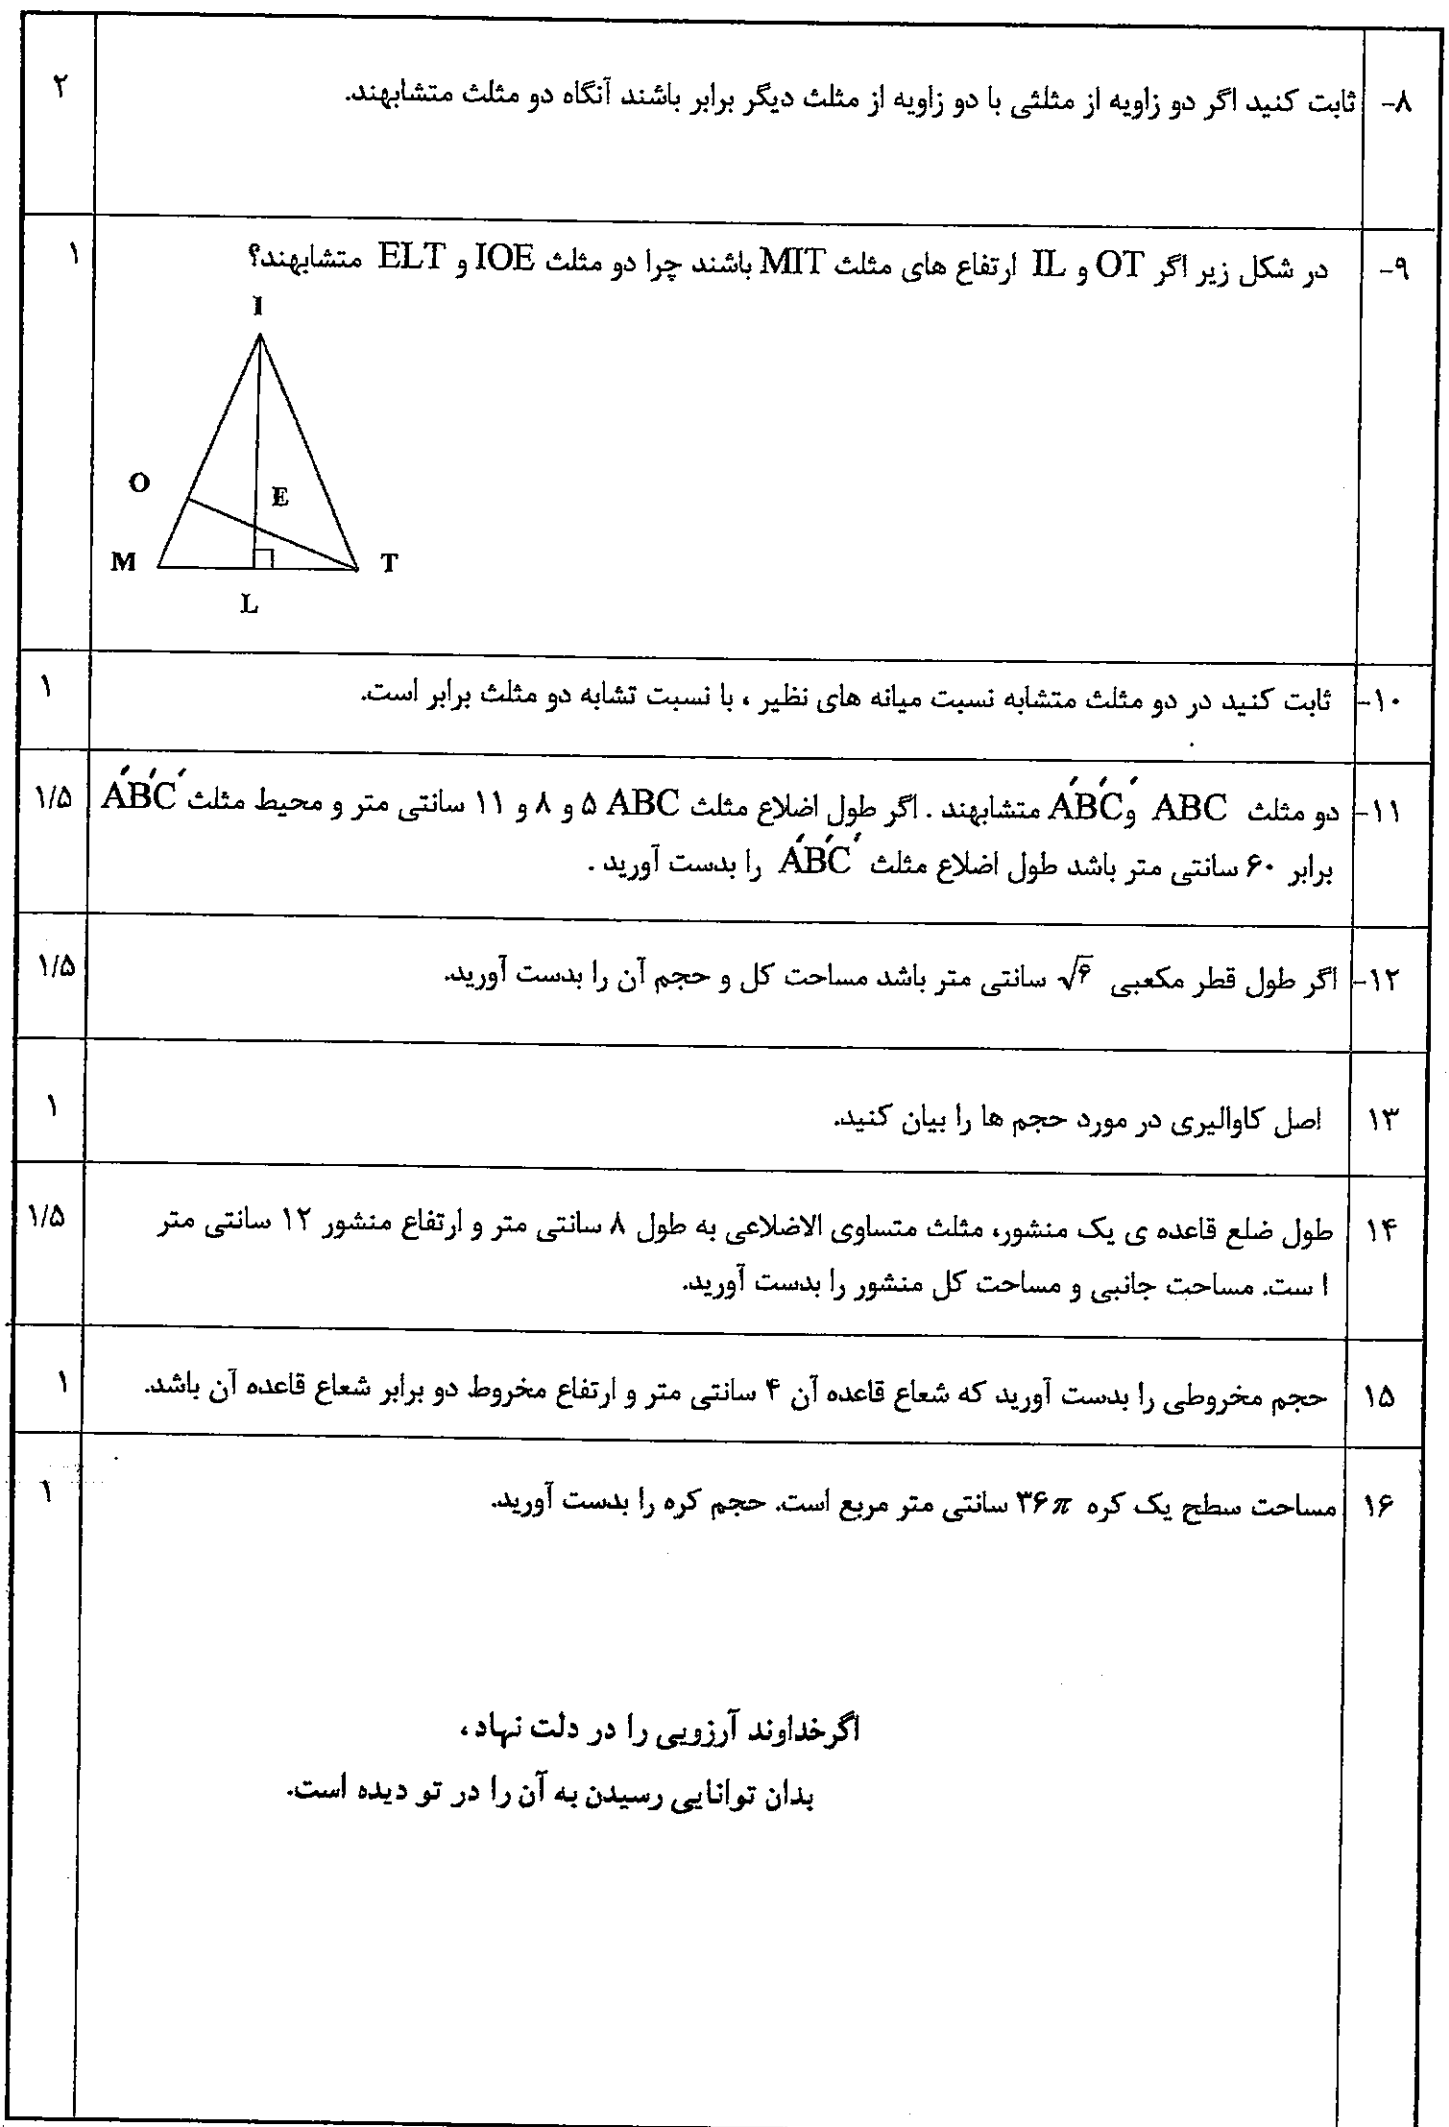 ۸- ثابت کنید اگر دو زاویه از مثلثی با دو زاویه از مثلث دیگر برابر باشند آنگاه دو مثلث متشابهند. ۲
۹- در شکل زیر اگر OT و IL ارتفاع های مثلث MIT باشند چرا دو مثلث IOE و ELT متشابهند؟ ۱
I
O
E
M
T
L
۱۰- ثابت کنید در دو مثلث متشابه نسبت میانه های نظیر ، با نسبت تشابه دو مثلث برابر است. ۱
۱۱- دو مثلث ABC و A´B´C´ متشابهند . اگر طول اضلاع مثلث ABC ۵ و ۸ و ۱۱ سانتی متر و محیط مثلث A´B´C´ ۱/۵
برابر ۶۰ سانتی متر باشد طول اضلاع مثلث A´B´C´ را بدست آورید .
۱۲- اگر طول قطر مکعبی √۶ سانتی متر باشد مساحت کل و حجم آن را بدست آورید. ۱/۵
۱۳ اصل کاوالیری در مورد حجم ها را بیان کنید. ۱
۱۴ طول ضلع قاعده ی یک منشور، مثلث متساوی الاضلاعی به طول ۸ سانتی متر و ارتفاع منشور ۱۲ سانتی متر ۱/۵
ا ست. مساحت جانبی و مساحت کل منشور را بدست آورید.
۱۵ حجم مخروطی را بدست آورید که شعاع قاعده آن ۴ سانتی متر و ارتفاع مخروط دو برابر شعاع قاعده آن باشد. ۱
۱۶ مساحت سطح یک کره ۳۶π سانتی متر مربع است. حجم کره را بدست آورید. ۱
اگرخداوند آرزویی را در دلت نهاد،
بدان توانایی رسیدن به آن را در تو دیده است.